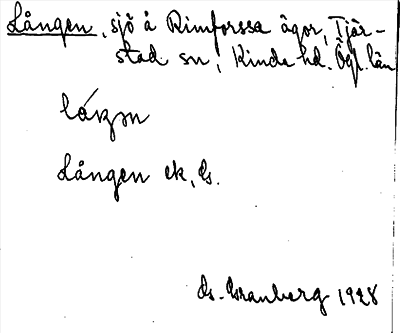 Lången, sjö å Rimforssa ägor, Tjär-
stad sn, Kinda hd. Ögl. län
Lången ek, G.
G. Granberg 1928